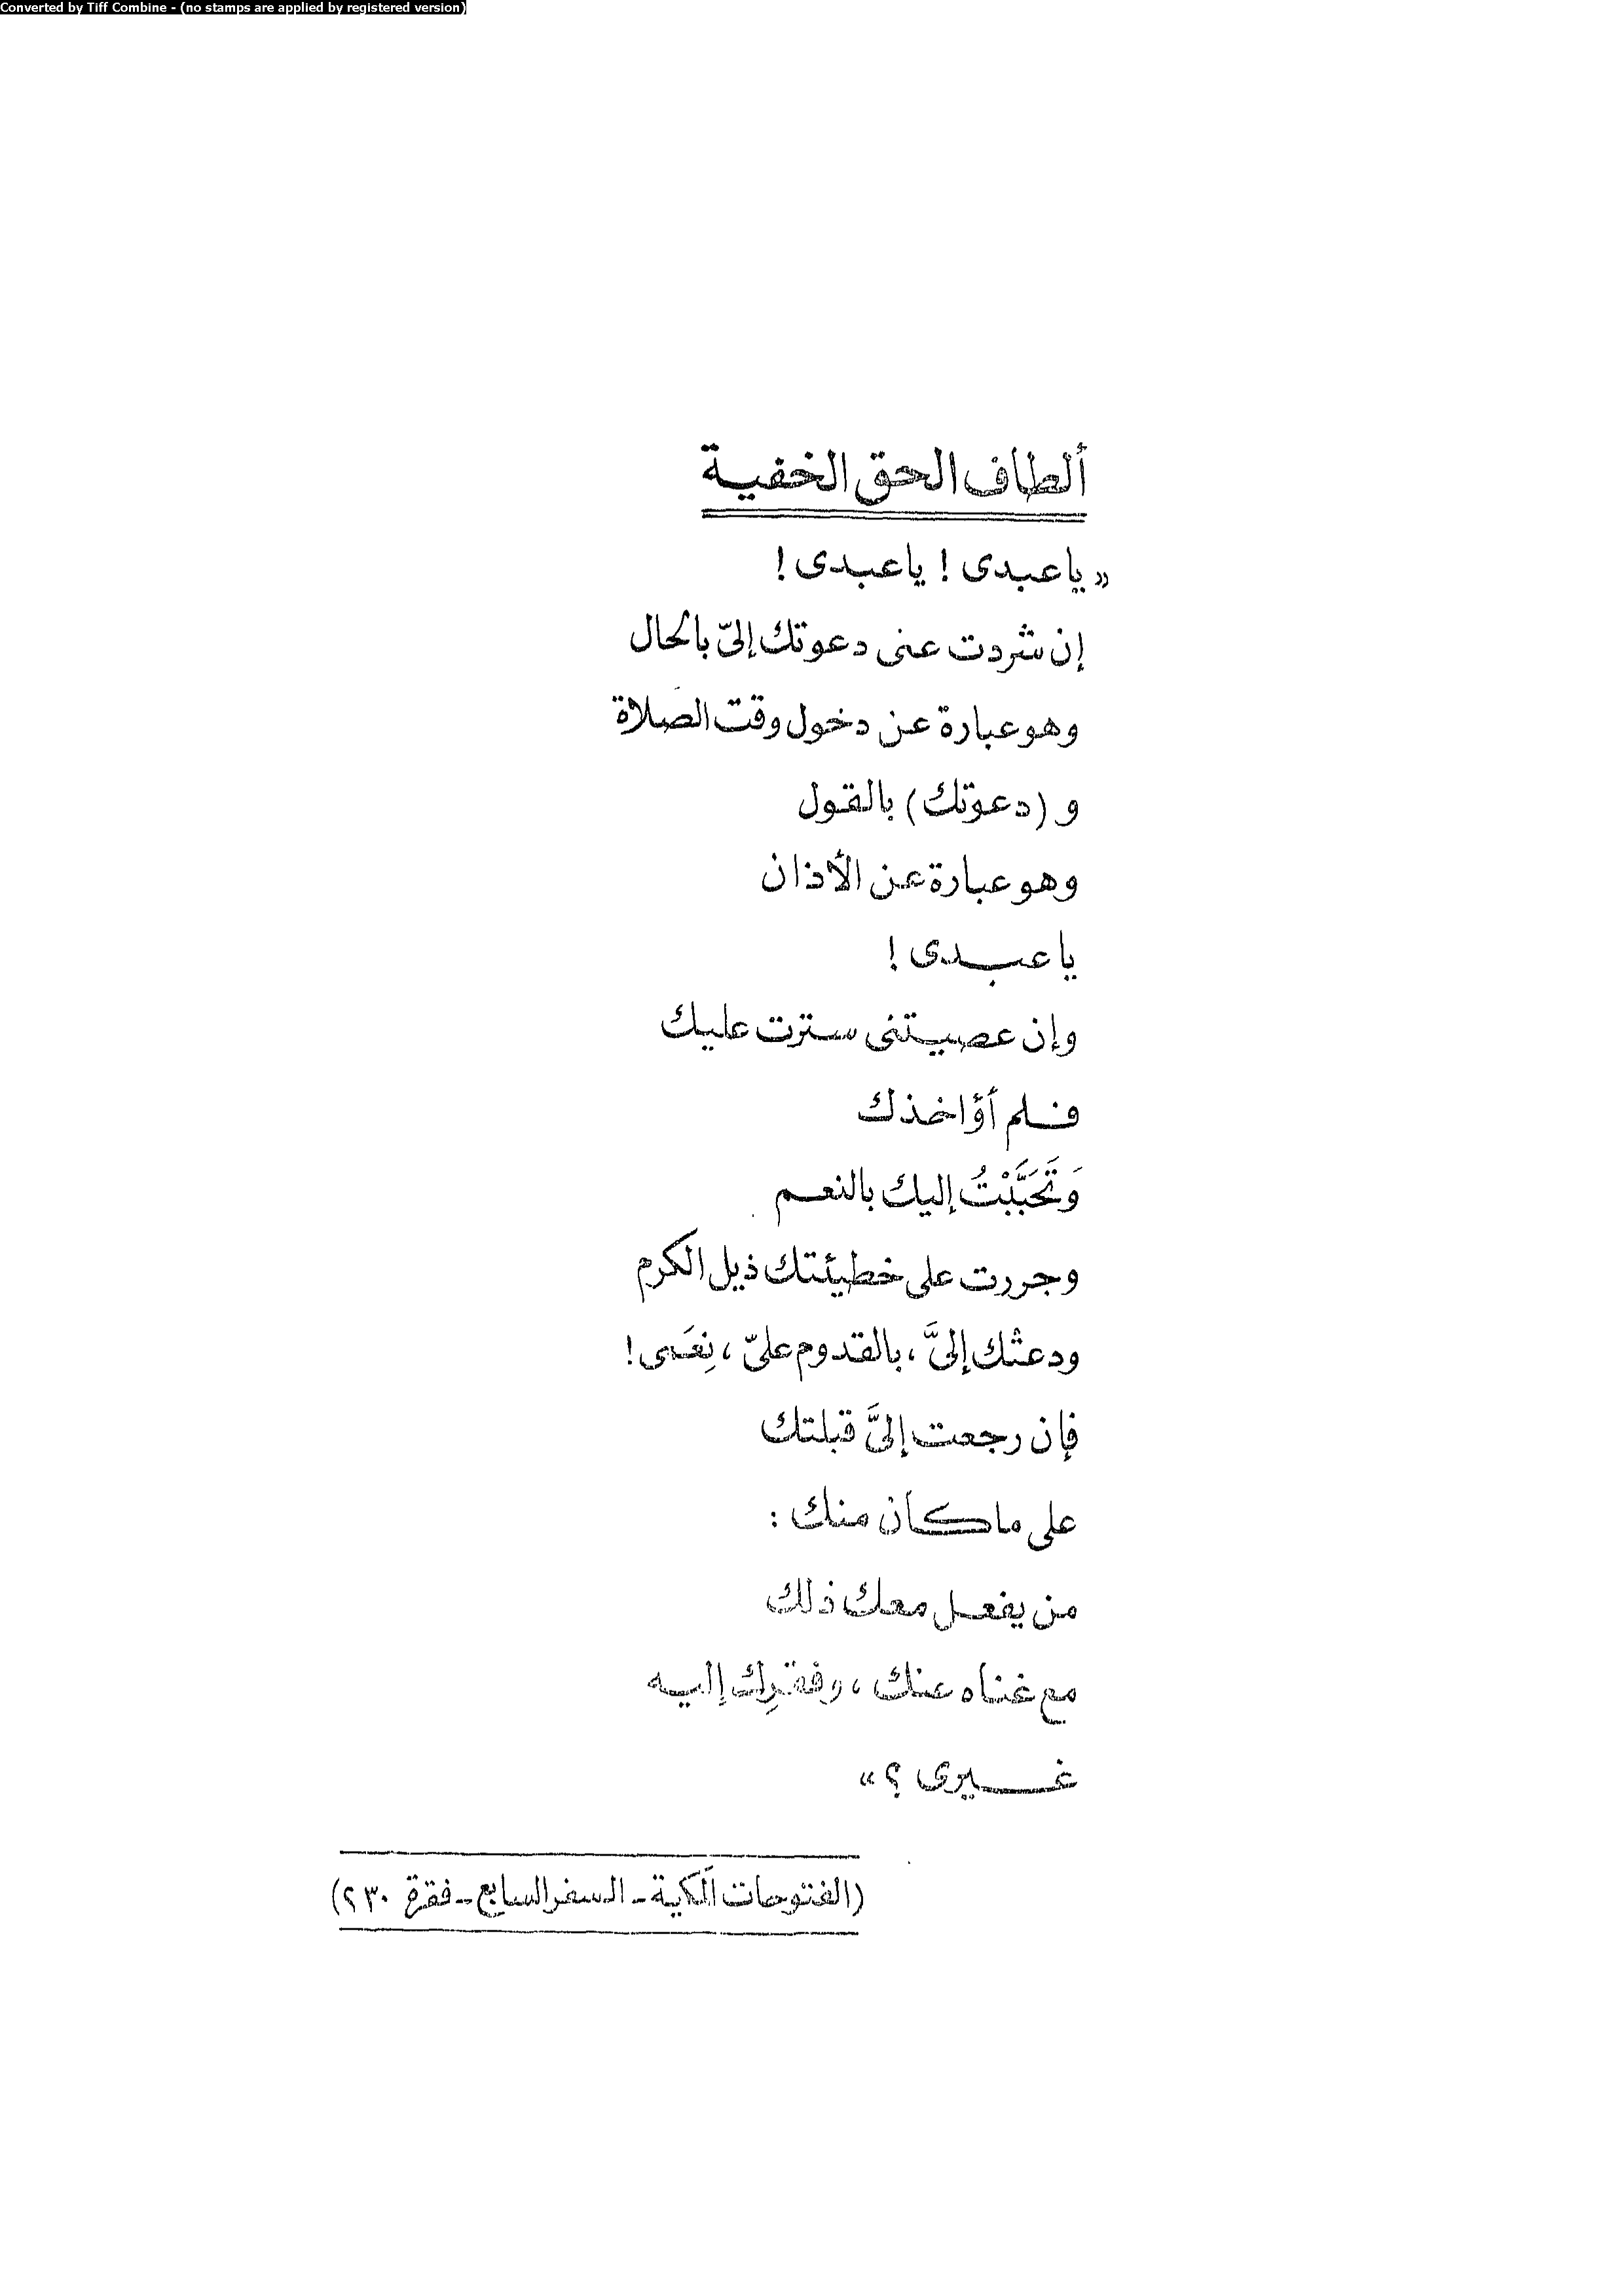 Converted by Tiff Combine - (no stamps are applied by registered version)
ألطاف الحق الخفية
« ياعبدى ! ياعبدى !
إن شردت عنى دعوتك إلىّ بالحال
وهو عبارة عن دخول وقت الصلاة
و (دعوتك) بالقول
وهو عبارة عن الأذان
يا عبدى !
وإن عصيتنى سترت عليك
فلم أؤاخذك
وَتَحَبَّبْتُ إليك بالنعم
وجررت على خطيئتك ذيل الكرم
ودعتْك إلىَّ ، بالقدوم علىّ ، نِعَمى !
فإن رجعت إلىَّ قبلتك
على ما كان منك :
من يفعل معك ذلك
مع غناه عنك ، وفقرِك إليه
غيرى ؟ »
(الفتوحات المكية - السفر السابع - فقرة ٢٣٠)